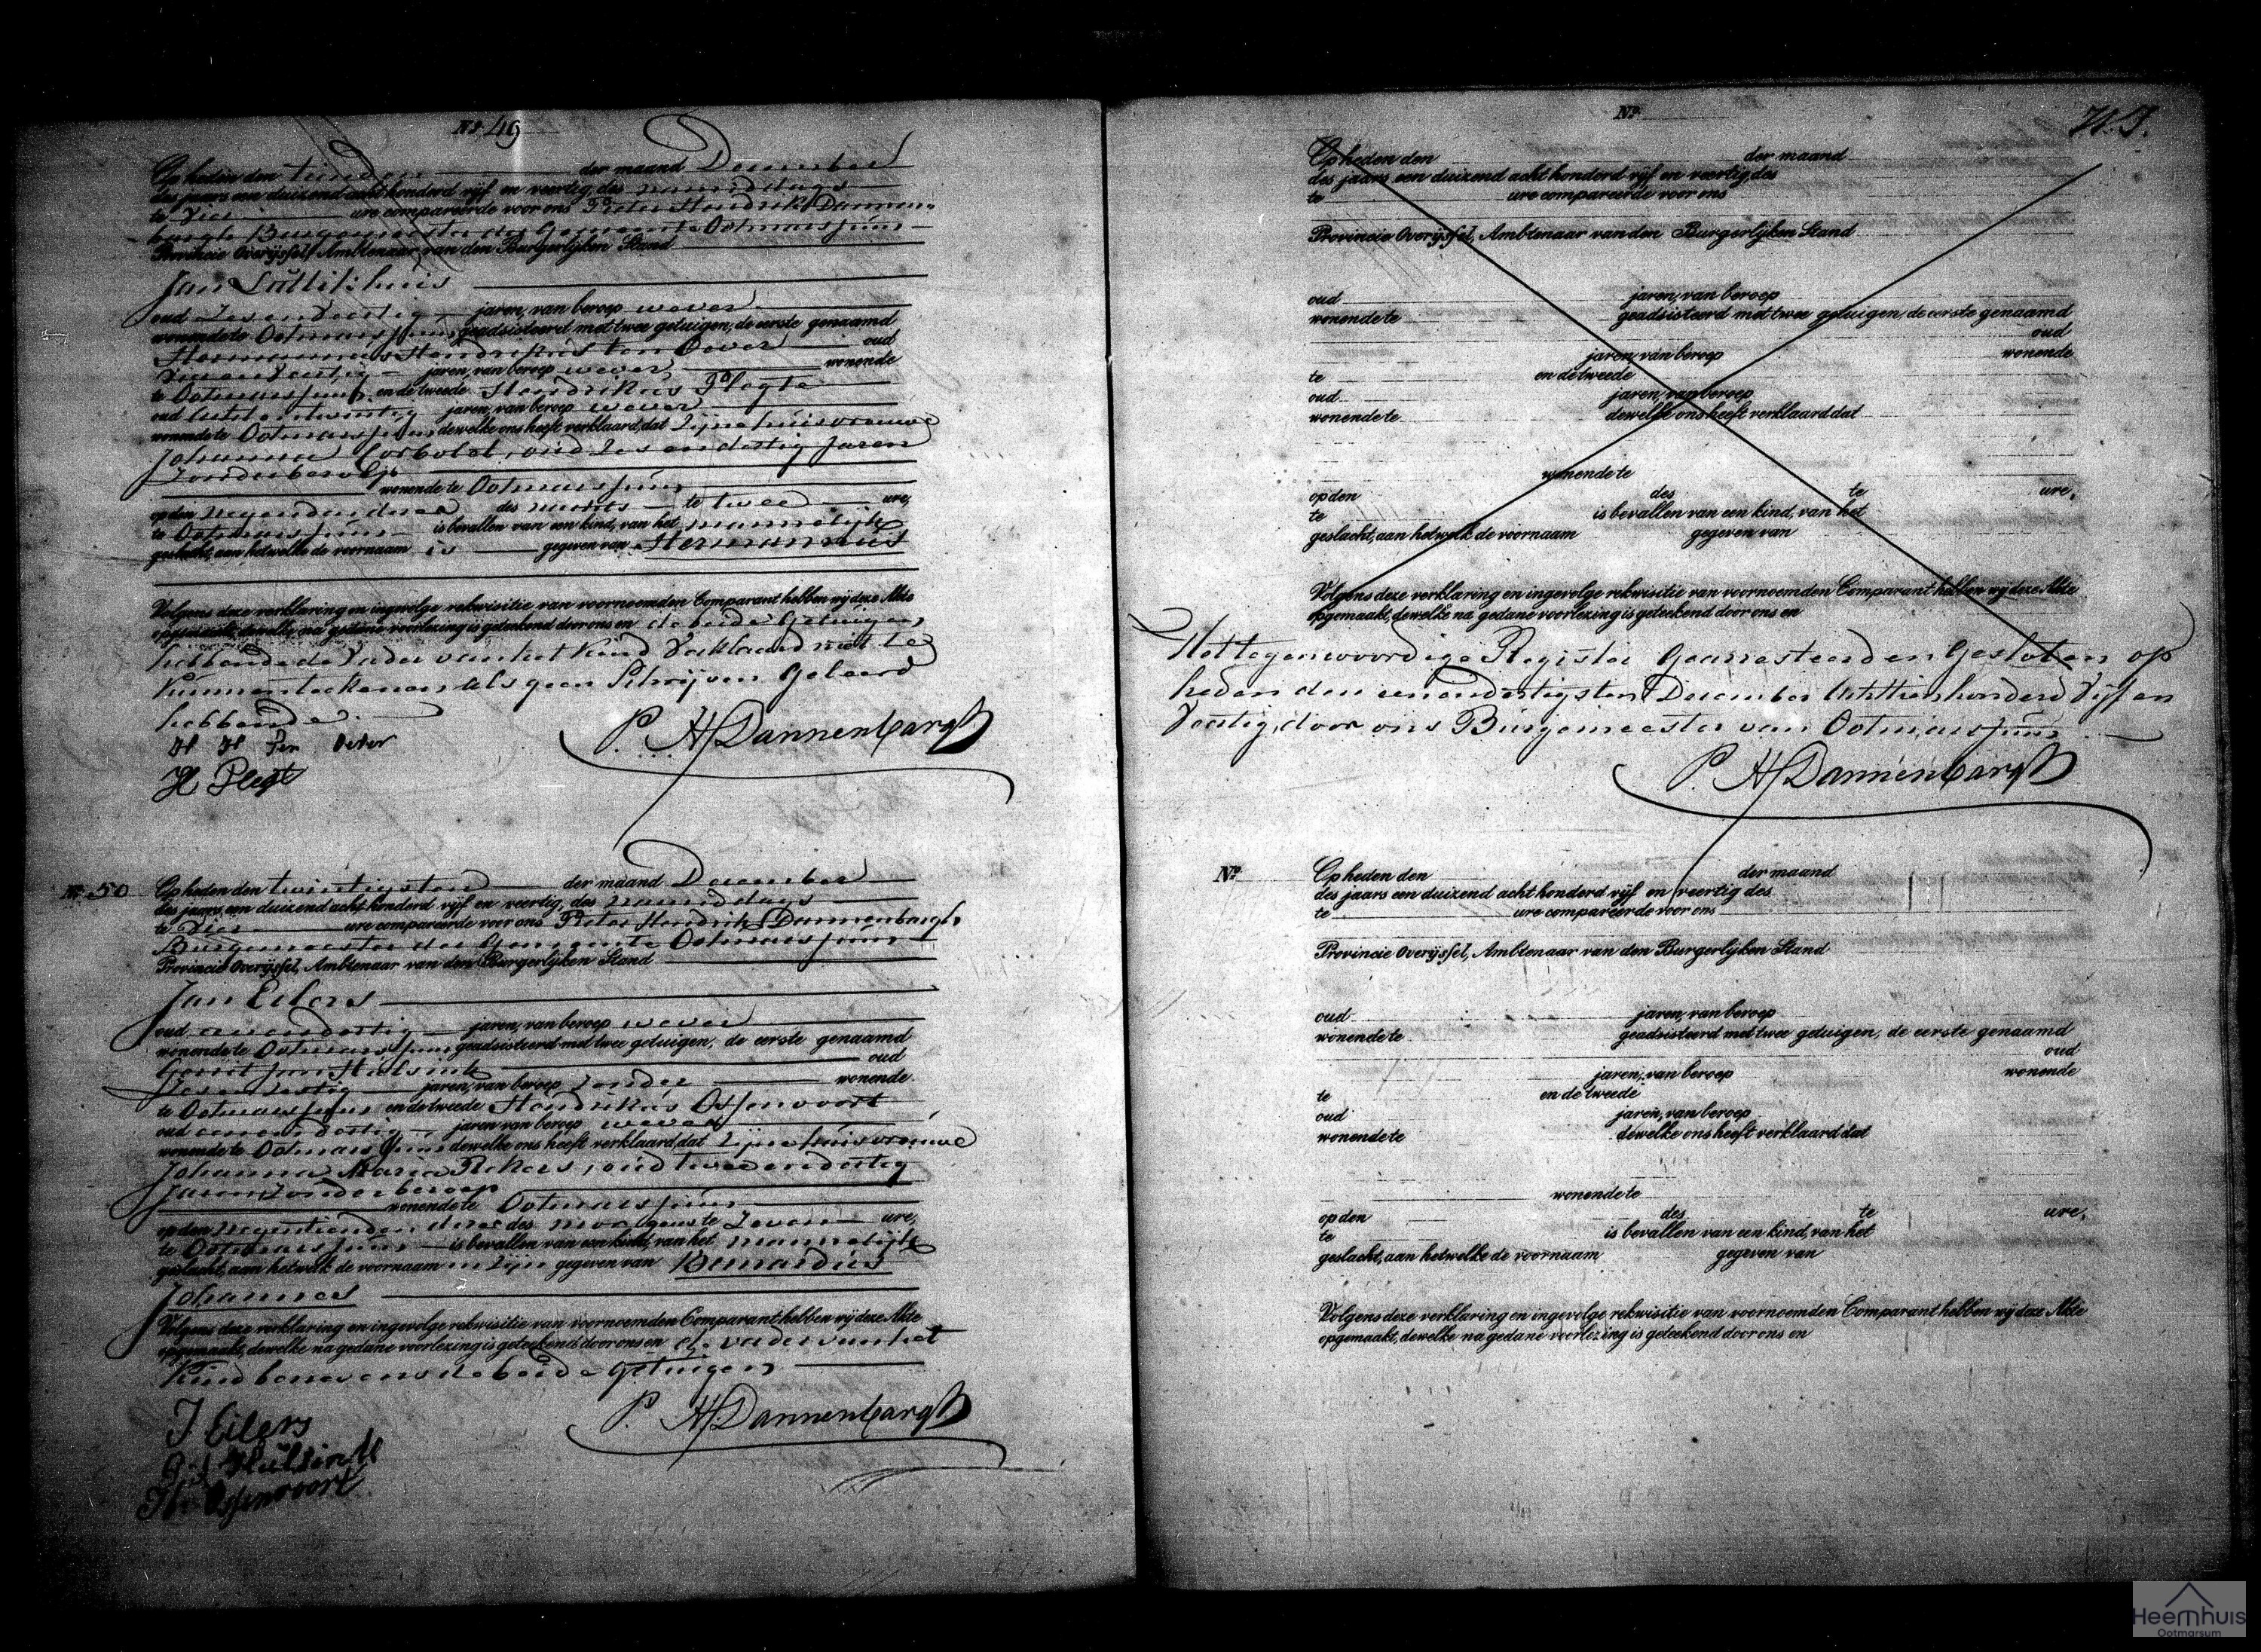 No. 49
Op heden den tienden der maand December
des jaars een duizend acht honderd vijf en veertig, des namiddags
te vier ure compareerde voor ons Pieter Hendrik Dannen-
bargh Burgemeester der Gemeente Ootmarssum
Provincie Overijssel, Ambtenaar van den Burgerlijken Stand
Jan Luttikhuis
oud zes en dertig jaren, van beroep wever
wonende te Ootmarssum geadsisteerd met twee getuigen, de eerste genaamd
Hermannus Hendrikus ten Oever oud
jaren, van beroep wever wonende
te Ootmarssum en de tweede Hendrikus Plegte
oud acht en twintig jaren, van beroep wever
wonende te Ootmarssum dewelke ons heeft verklaard, dat zijne huisvrouwe
Johanna oud zes en dertig Jaren
Zonder beroep
wonende te Ootmarssum
op den negenden dezer des te twee ure,
te Ootmarssum is bevallen van een kind, van het mannelijk
geslacht, aan hetwelke de voornaam is gegeven van Hermannus
Volgens deze verklaring en ingevolge rekwisitie van voornoemden Comparant hebben wij deze Akte
opgemaakt, dewelke na gedane voorlezing is geteekend door ons en de beide Getuigen,
hebbende de Vader van het Kind Verklaard niet te
Kunnen teekenen als geen Schrijven Geleerd
hebbende.
H H Ten Oever
P. H. Dannenbargh
H Plegt
No. 50
Op heden den twintigsten der maand December
des jaars een duizend acht honderd vijf en veertig, des namiddags
te vier ure compareerde voor ons Pieter Hendrik Dannenbargh,
Burgemeester der Gemeente Ootmarssum
Provincie Overijssel, Ambtenaar van den Burgerlijken Stand
Jan Eilers
oud en dertig jaren, van beroep wever
wonende te Ootmarssum geadsisteerd met twee getuigen, de eerste genaamd
Gerrit Jan Hulsink oud
jaren, van beroep zonder wonende
te Ootmarssum en de tweede Hendrikus Ossenvoort
oud en dertig jaren van beroep wever
wonende te Ootmarssum dewelke ons heeft verklaard, dat zijne huisvrouwe
Johanna Maria oud twee en dertig
Jaren Zonder beroep
wonende te Ootmarssum
op den negentienden dezer des morgens te Zeven ure,
te Ootmarssum is bevallen van een kind, van het mannelijk
geslacht, aan hetwelk de voornaamen zijn gegeven van Bernardus
Johannes
Volgens deze verklaring en ingevolge rekwisitie van voornoemden Comparant hebben wij deze Akte
opgemaakt, dewelke na gedane voorlezing is geteekend door ons en de vader van het
Kind benevens de beide Getuigen
J Eilers
P. H. Dannenbargh
G J Hulsink
H. Ossenvoort
No.
Op heden den der maand
des jaars een duizend acht honderd vijf en veertig, des
te ure compareerde voor ons
Provincie Overijssel, Ambtenaar van den Burgerlijken Stand
oud jaren, van beroep
wonende te geadsisteerd met twee getuigen, de eerste genaamd
oud
jaren, van beroep wonende
te en de tweede
oud jaren, van beroep
wonende te dewelke ons heeft verklaard dat
wonende te
op den des te ure,
te is bevallen van een kind, van het
geslacht, aan hetwelk de voornaam gegeven van
Volgens deze verklaring en ingevolge rekwisitie van voornoemden Comparant hebben wij deze Akte
opgemaakt, dewelke na gedane voorlezing is geteekend door ons en
Het tegenwoordige Register Gearresteerd en Gesloten op
heden den een en dertigsten December Achttienhonderd Vijf en
Veertig, door ons Burgemeester van Ootmarssum
P. H. Dannenbargh
No.
Op heden den der maand
des jaars een duizend acht honderd vijf en veertig des
te ure compareerde voor ons
Provincie Overijssel, Ambtenaar van den Burgerlijken Stand
oud jaren, van beroep
wonende te geadsisteerd met twee getuigen, de eerste genaamd
oud
jaren, van beroep wonende
te en de tweede
oud jaren, van beroep
wonende te dewelke ons heeft verklaard dat
wonende te
op den des te ure,
te is bevallen van een kind, van het
geslacht, aan hetwelke de voornaam gegeven van
Volgens deze verklaring en ingevolge rekwisitie van voornoemden Comparant hebben wij deze Akte
opgemaakt, dewelke na gedane voorlezing is geteekend door ons en
Heemhuis
Ootmarsum